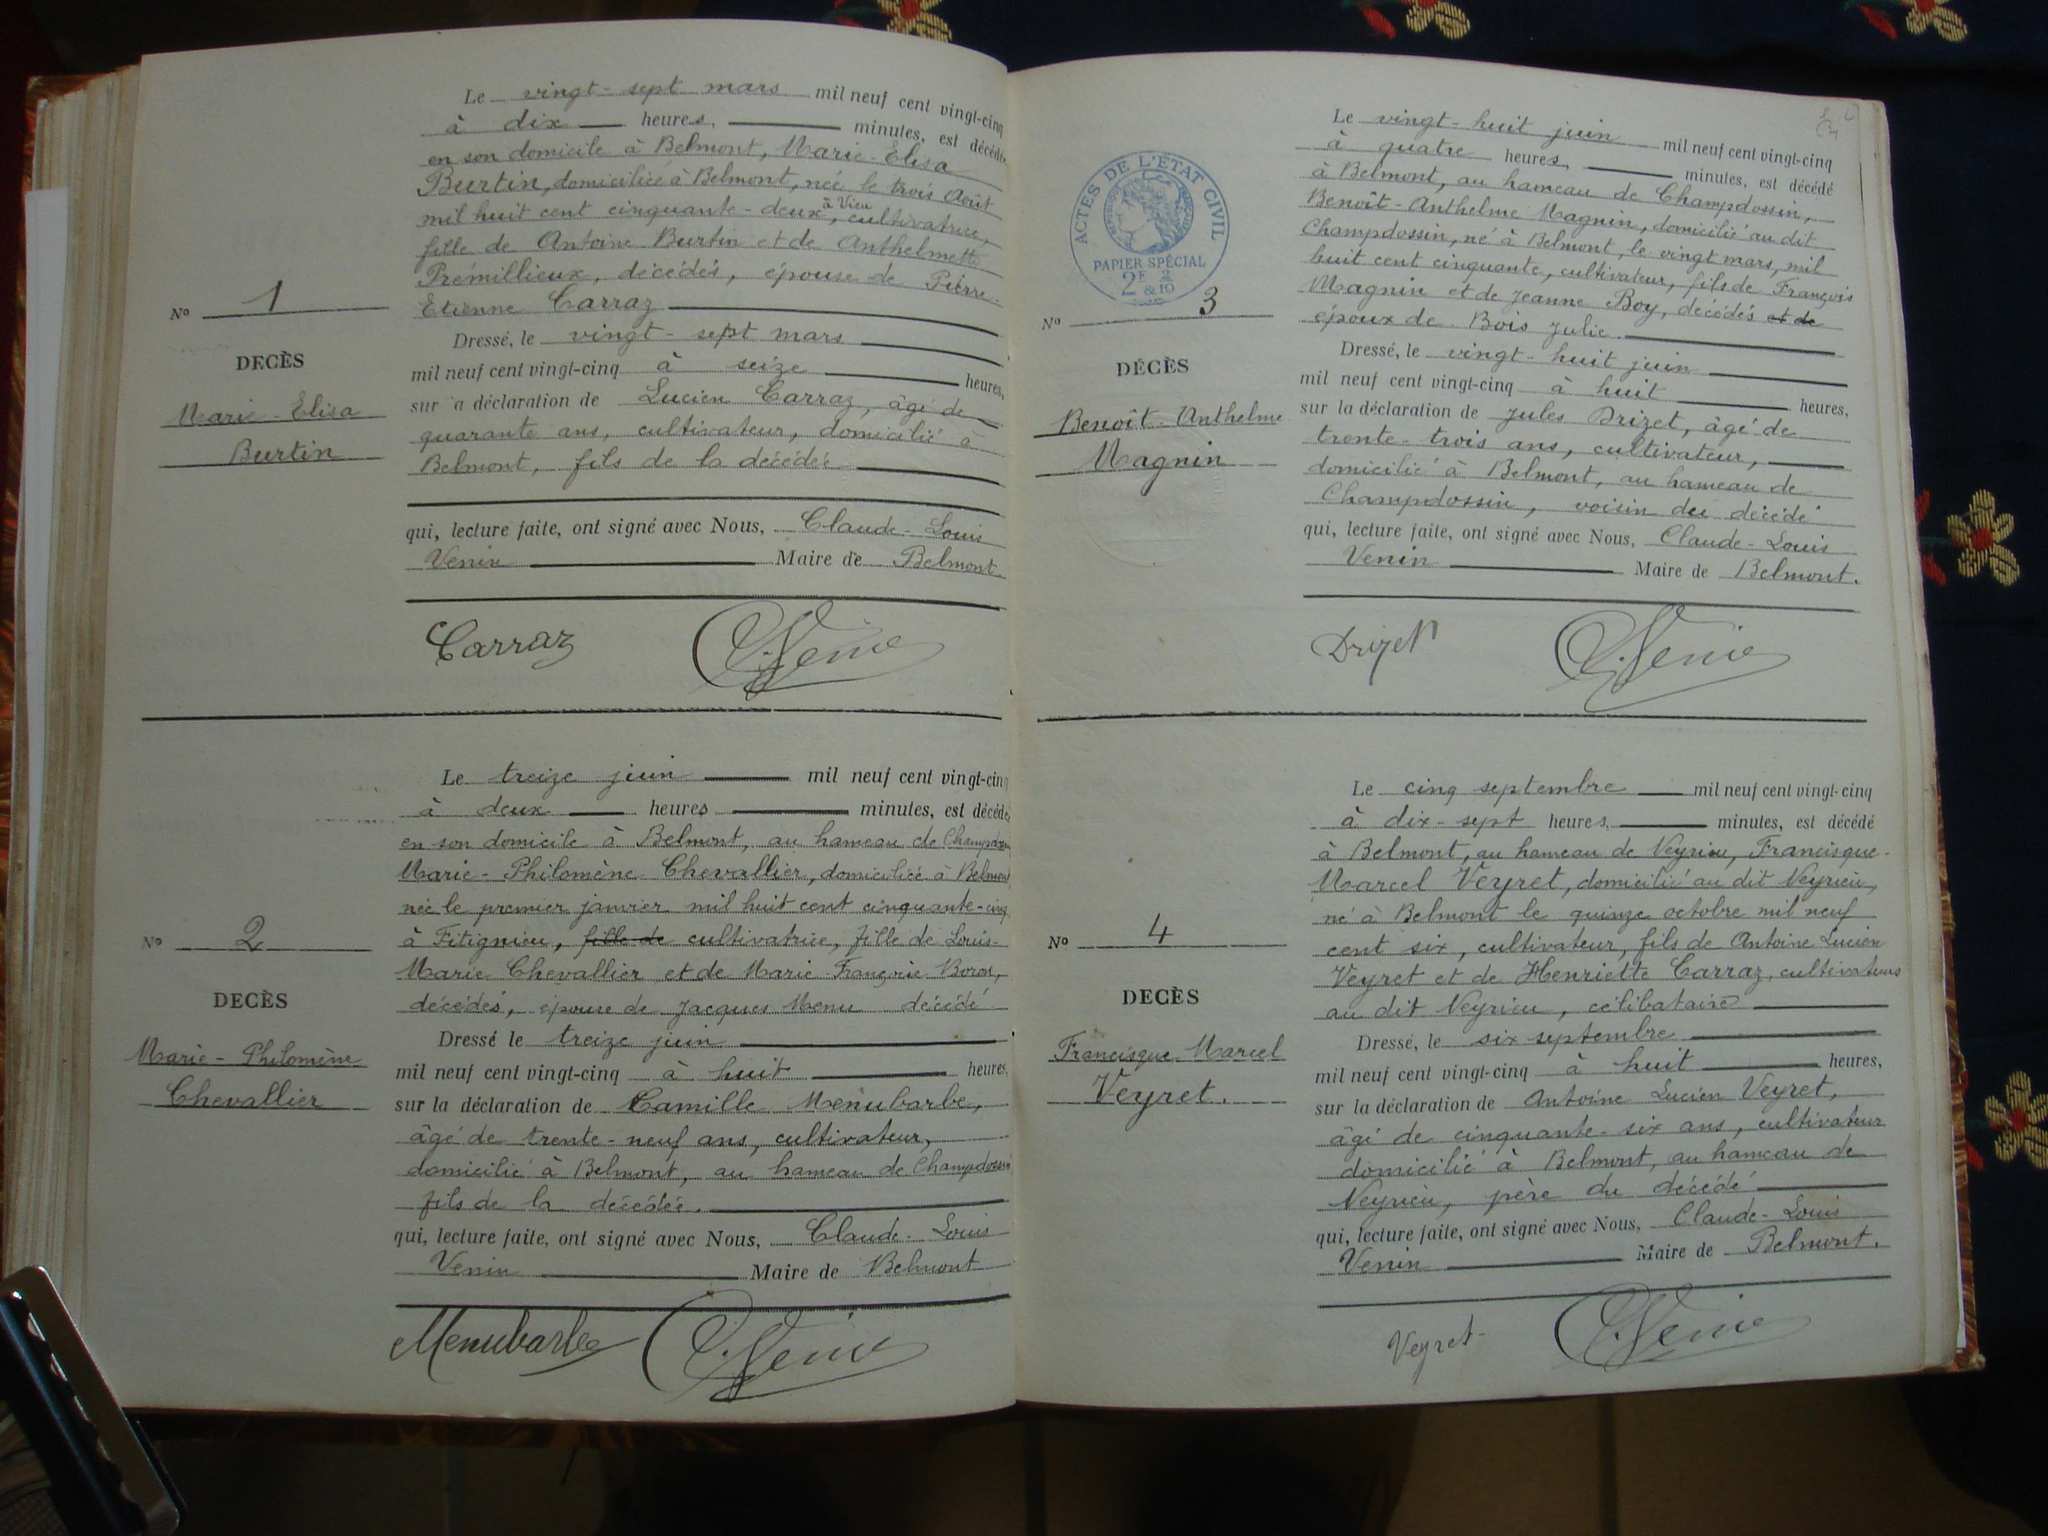 Le vingt-sept mars mil neuf cent vingt-cinq
à dix heures, minutes, est décédée
en son domicile à Belmont, Marie-Elisa
Burtin, domiciliée à Belmont, née le trois Août
mil huit cent cinquante-deux, à Vieu cultivatrice,
fille de Antoine Burtin et de Anthelmette
Prémillieux, décédés, épouse de Pierre-
Etienne Carraz
No 1
DECÈS
Marie-Elisa
Burtin
Dressé, le vingt-sept mars
mil neuf cent vingt-cinq à seize heures,
sur a déclaration de Lucien Carraz, âgé de
quarante ans, cultivateur, domicilié à
Belmont, fils de la décédée
qui, lecture faite, ont signé avec Nous, Claude-Louis
Venin Maire de Belmont
Carraz C. Venin
Le treize juin mil neuf cent vingt-cinq
à deux heures minutes, est décédée
en son domicile à Belmont, au hameau de
Marie-Philomène Chevallier, domiciliée à Belmont
née le premier janvier mil huit cent cinquante-cinq
à Fitignieu, fille de cultivatrice, fille de Louis-
Marie Chevallier et de Marie
décédés, épouse de Jacques Menu décédé
No 2
DECÈS
Marie-Philomène
Chevallier
Dressé le treize juin
mil neuf cent vingt-cinq à huit heures,
sur la déclaration de Camille Menubarbe,
âgé de trente-neuf ans, cultivateur,
domicilié à Belmont, au hameau de Champdossin
fils de la décédée.
qui, lecture faite, ont signé avec Nous, Claude-Louis
Venin Maire de Belmont
Menubarbe C. Venin
Le vingt-huit juin mil neuf cent vingt-cinq
à quatre heures, minutes, est décédé
à Belmont, au hameau de Champdossin,
Benoît-Anthelme Magnin, domicilié au dit
Champdossin, né à Belmont, le vingt mars, mil
huit cent cinquante, cultivateur, fils de François
Magnin et de Jeanne Boy, décédés et de
époux de Bois Julie.
ACTES DE L'ÉTAT CIVIL
PAPIER SPÉCIAL
2F & 2/10
No 3
DÉCÈS
Benoît-Anthelme
Magnin
Dressé, le vingt-huit juin
mil neuf cent vingt-cinq à huit heures,
sur la déclaration de Jules Drizet, âgé de
trente-trois ans, cultivateur,
domicilié à Belmont, au hameau de
Champdossin, voisin du décédé
qui, lecture faite, ont signé avec Nous, Claude-Louis
Venin Maire de Belmont.
Drizet C. Venin
Le cinq septembre mil neuf cent vingt-cinq
à dix-sept heures, minutes, est décédé
à Belmont, au hameau de Veyrieu, Francisque-
Marcel Veyret, domicilié au dit Veyrieu,
né à Belmont le quinze octobre mil neuf
cent six, cultivateur, fils de Antoine Lucien
Veyret et de Henriette Carraz, cultivateurs
au dit Veyrieu, célibataire
No 4
DECÈS
Francisque Marcel
Veyret.
Dressé, le six septembre
mil neuf cent vingt-cinq à huit heures,
sur la déclaration de Antoine Lucien Veyret,
âgé de cinquante-six ans, cultivateur
domicilié à Belmont, au hameau de
Veyrieu, père du décédé
qui, lecture faite, ont signé avec Nous, Claude-Louis
Venin Maire de Belmont.
Veyret C. Venin